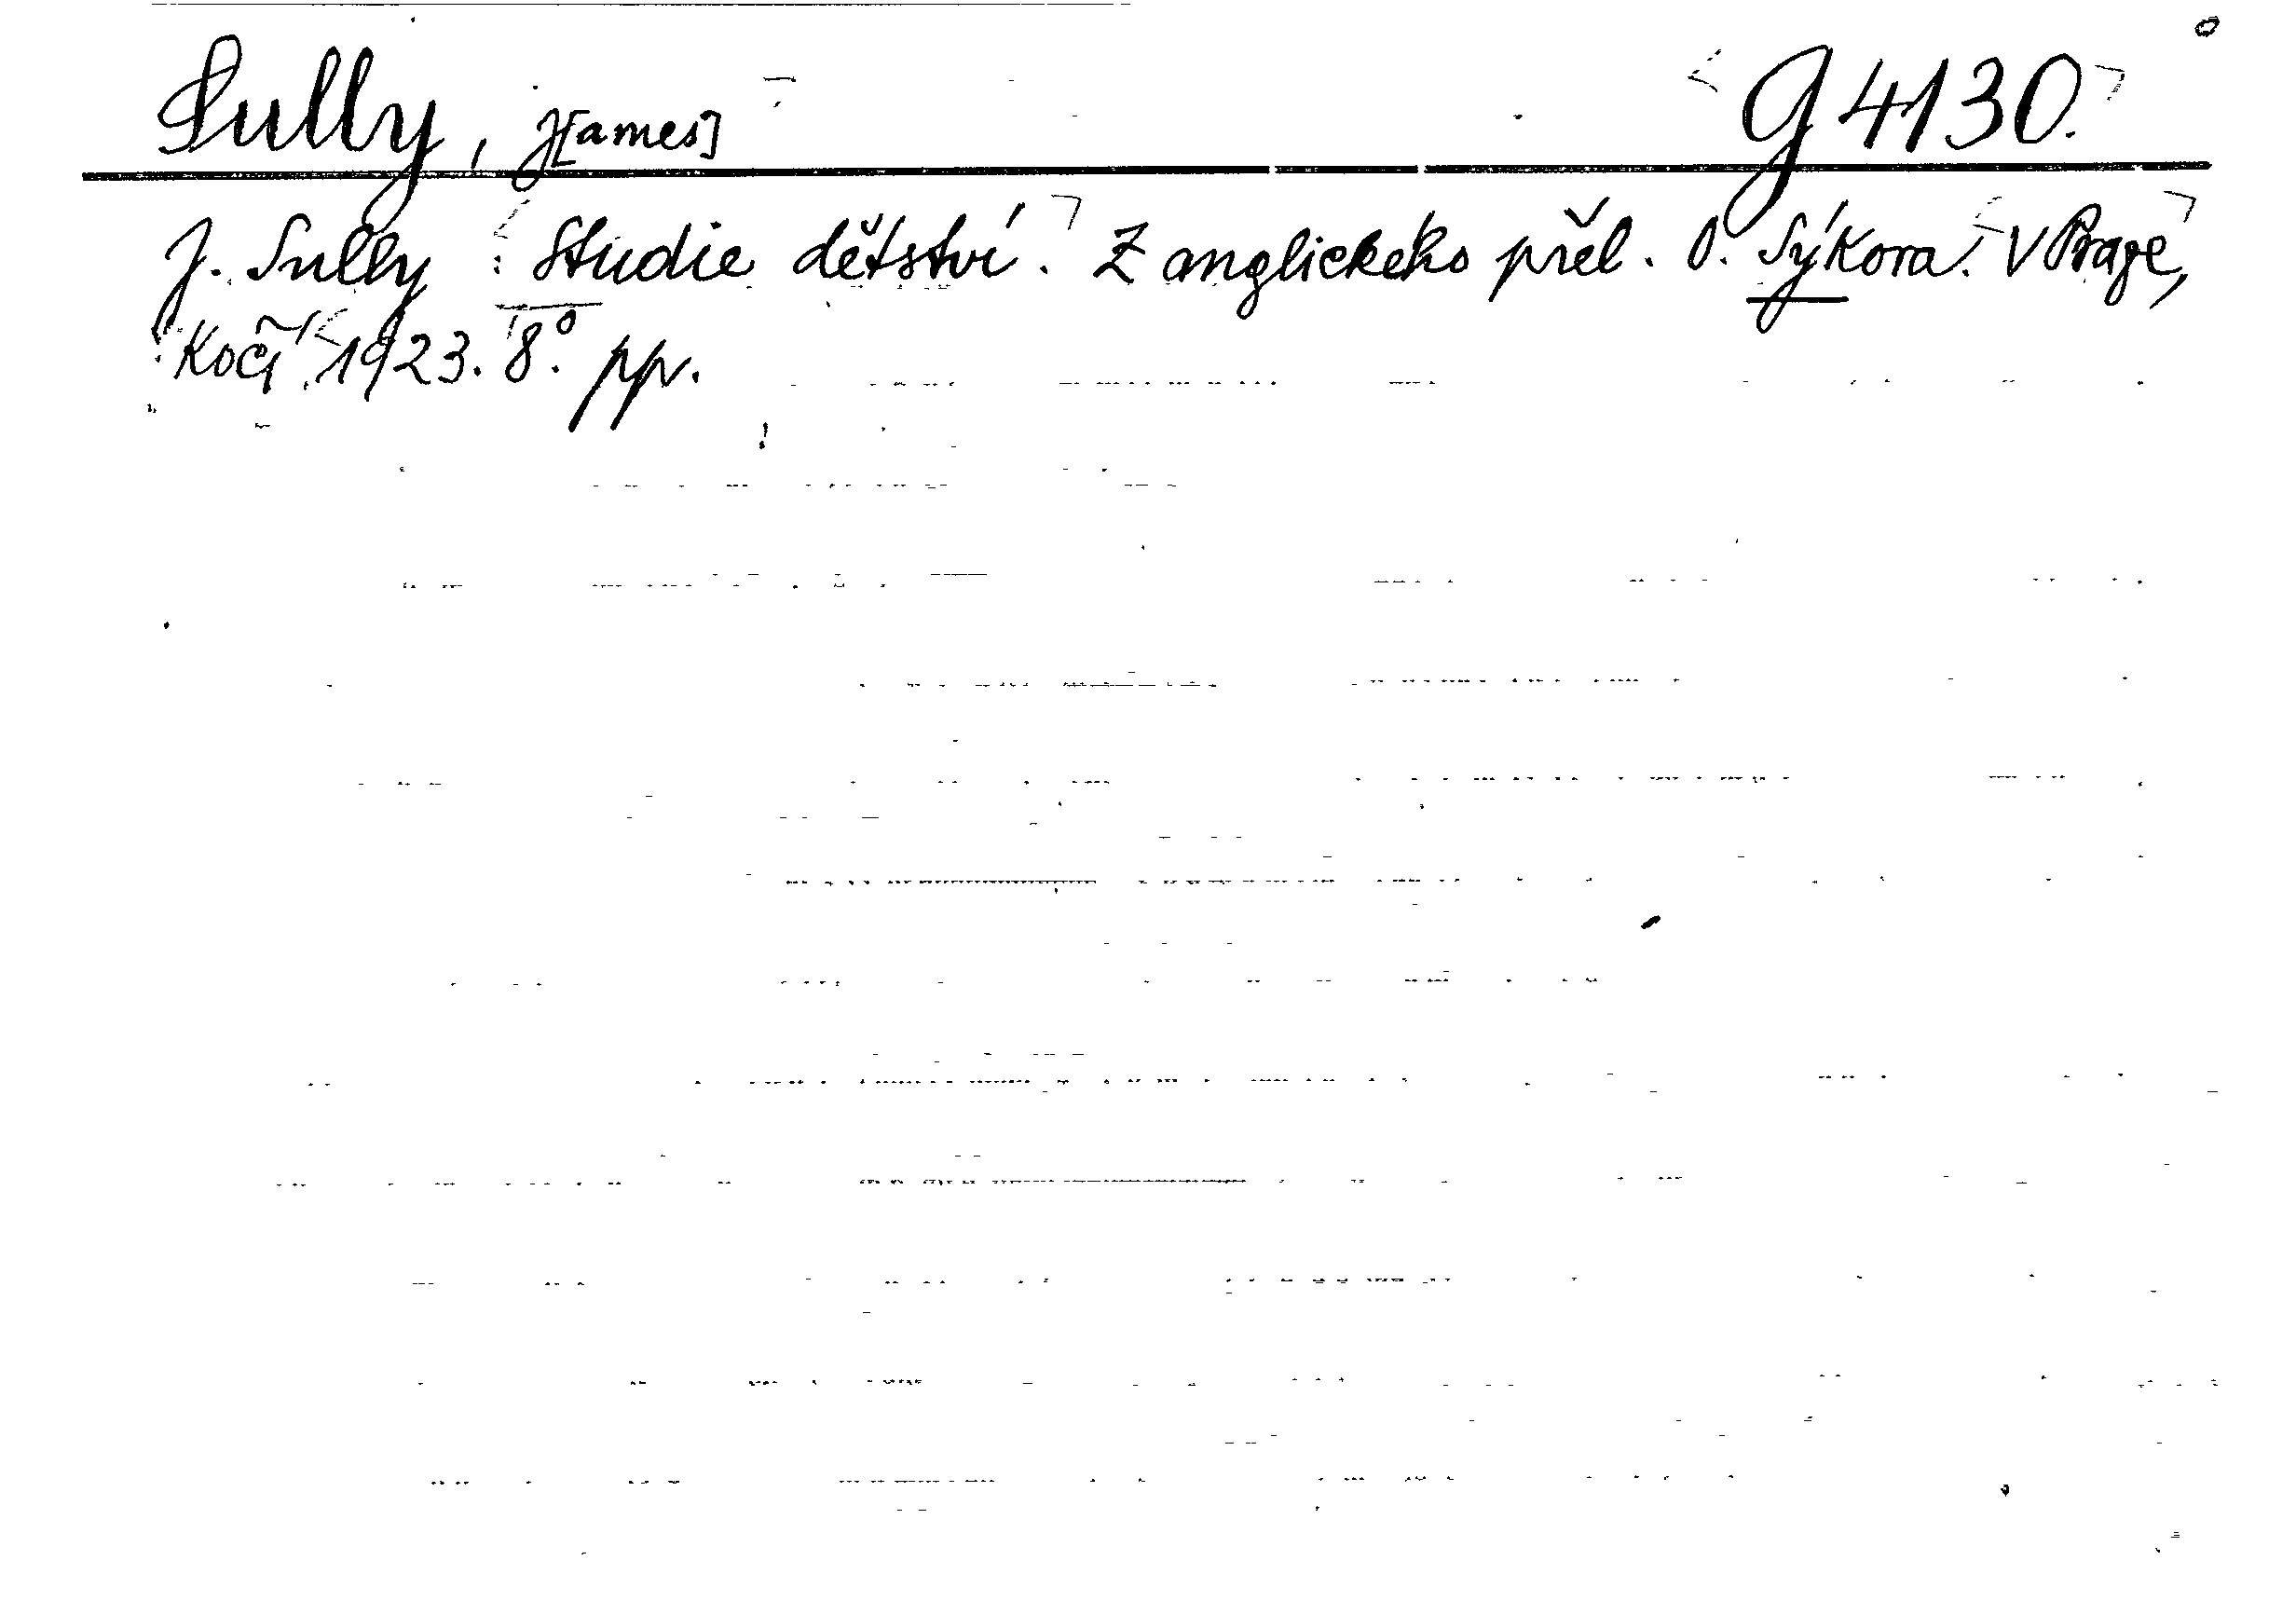 Sully, J[ames] G 4130.
J. Sully : Studie dětství. Z anglickeho přel. O. Sýkora. V Praze,
Kočí 1923. 8°. pp.